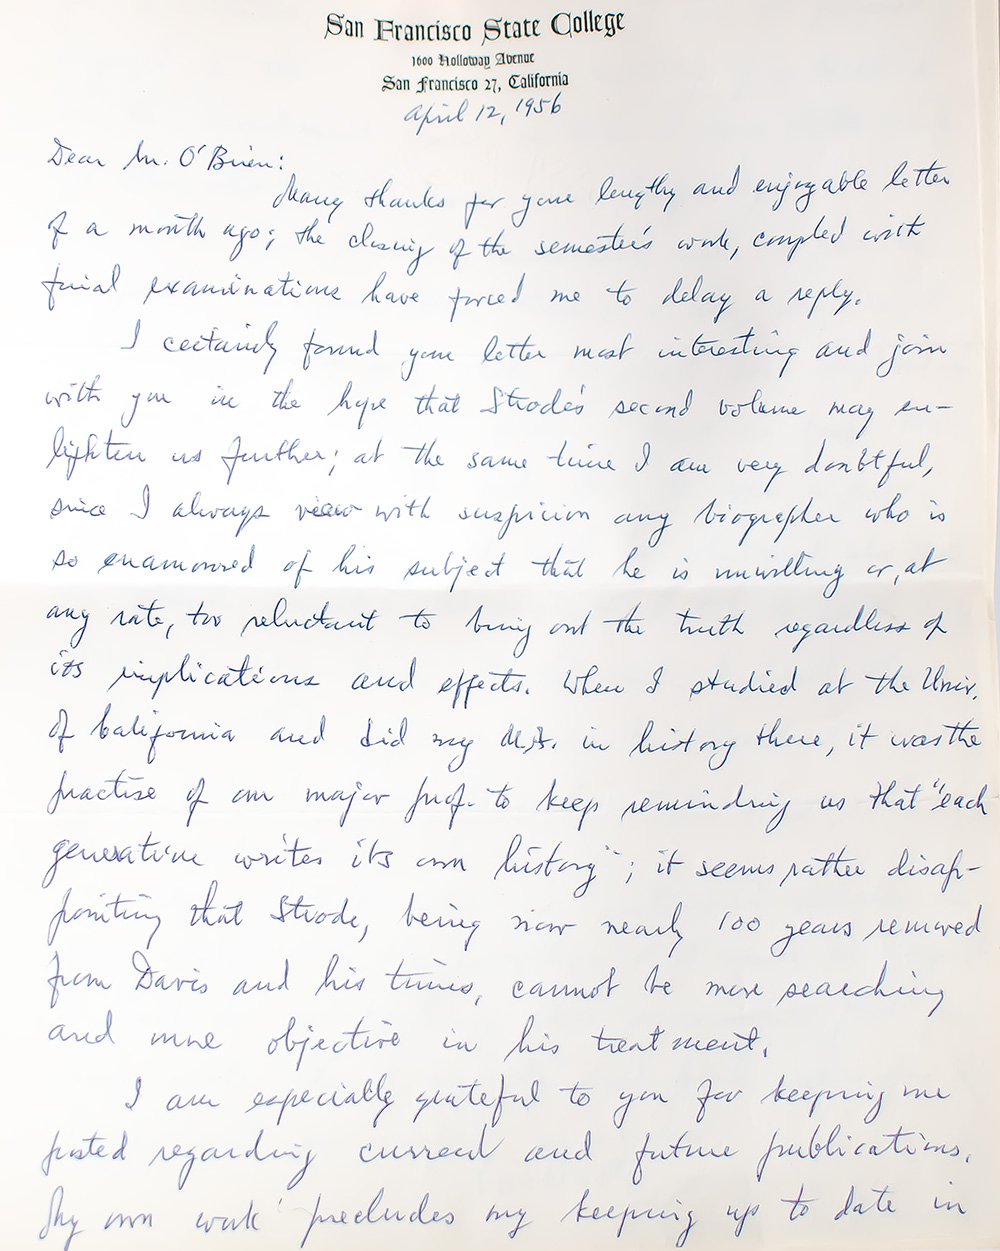 San Francisco State College
1600 Holloway Avenue
San Francisco 27, California
April 12, 1956
Dear Mr. O'Brien:
Many thanks for your lengthy and enjoyable letter
of a month ago; the closing of the semester's work, coupled with
final examinations have forced me to delay a reply.
I certainly found your letter most interesting and join
with you in the hope that Strode's second volume may en-
lighten us further; at the same time I am very doubtful,
since I always view with suspicion any biographer who is
so enamored of his subject that he is unwilling or, at
any rate, too reluctant to bring out the truth regardless of
its implications and effects. When I studied at the Univ.
of California and did my M.A. in history there, it was the
practise of our major prof. to keep reminding us that "each
generation writes its own history"; it seems rather disap-
pointing that Strode, being now nearly 100 years removed
from Davis and his times, cannot be more searching
and more objective in his treatment.
I am especially grateful to you for keeping me
posted regarding current and future publications.
My own work precludes my keeping up to date in